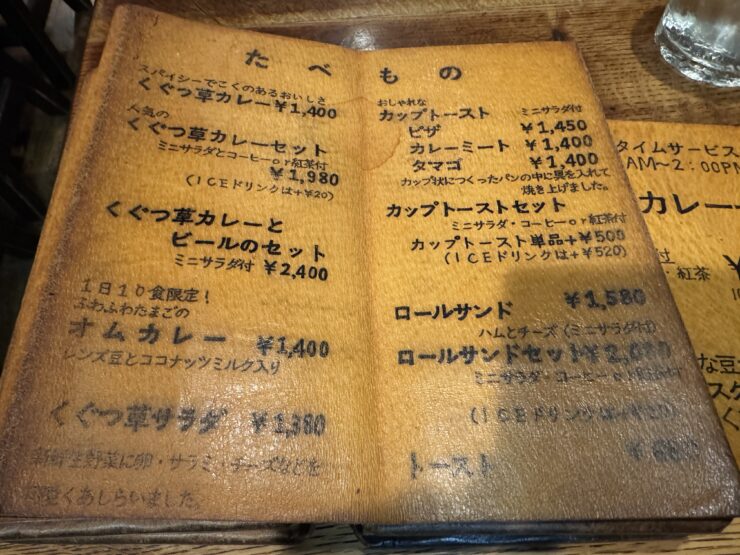 たべもの
スパイシーでこくのあるおいしさ
くぐつ草カレー¥1,400
人気の
くぐつ草カレーセット
ミニサラダとコーヒーor紅茶付
¥1,980
(ICEドリンクは+¥20)
くぐつ草カレーと
ビールのセット
ミニサラダ付 ¥2,400
1日10食限定!
ふわふわたまごの
オムカレー ¥1,400
レンズ豆とココナッツミルク入り
くぐつ草サラダ ¥1,380
新鮮生野菜に卵・サラミ・チーズなどを
くあしらいました。
おしゃれな
カップトースト ミニサラダ付
ピザ ¥1,450
カレーミート ¥1,400
タマゴ ¥1,400
カップ状につくったパンの中に具を入れて
焼き上げました。
カップトーストセット
ミニサラダ・コーヒーor紅茶付
カップトースト単品+¥500
(ICEドリンクは+¥520)
ロールサンド ¥1,580
ハムとチーズ(ミニサラダ付)
ロールサンドセット
ミニサラダ・コーヒーor紅茶付
(ICEドリンクは+¥20)
トースト
タイムサービス
AM~2:00PM
カレー
付
・紅茶